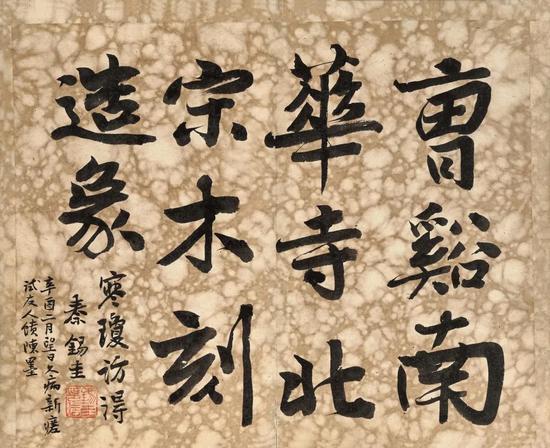 曹谿南
華寺北
宋木刻
造象
寒瓊訪得
秦錫圭
辛酉二月望日久病新瘥
試友人饋陳墨